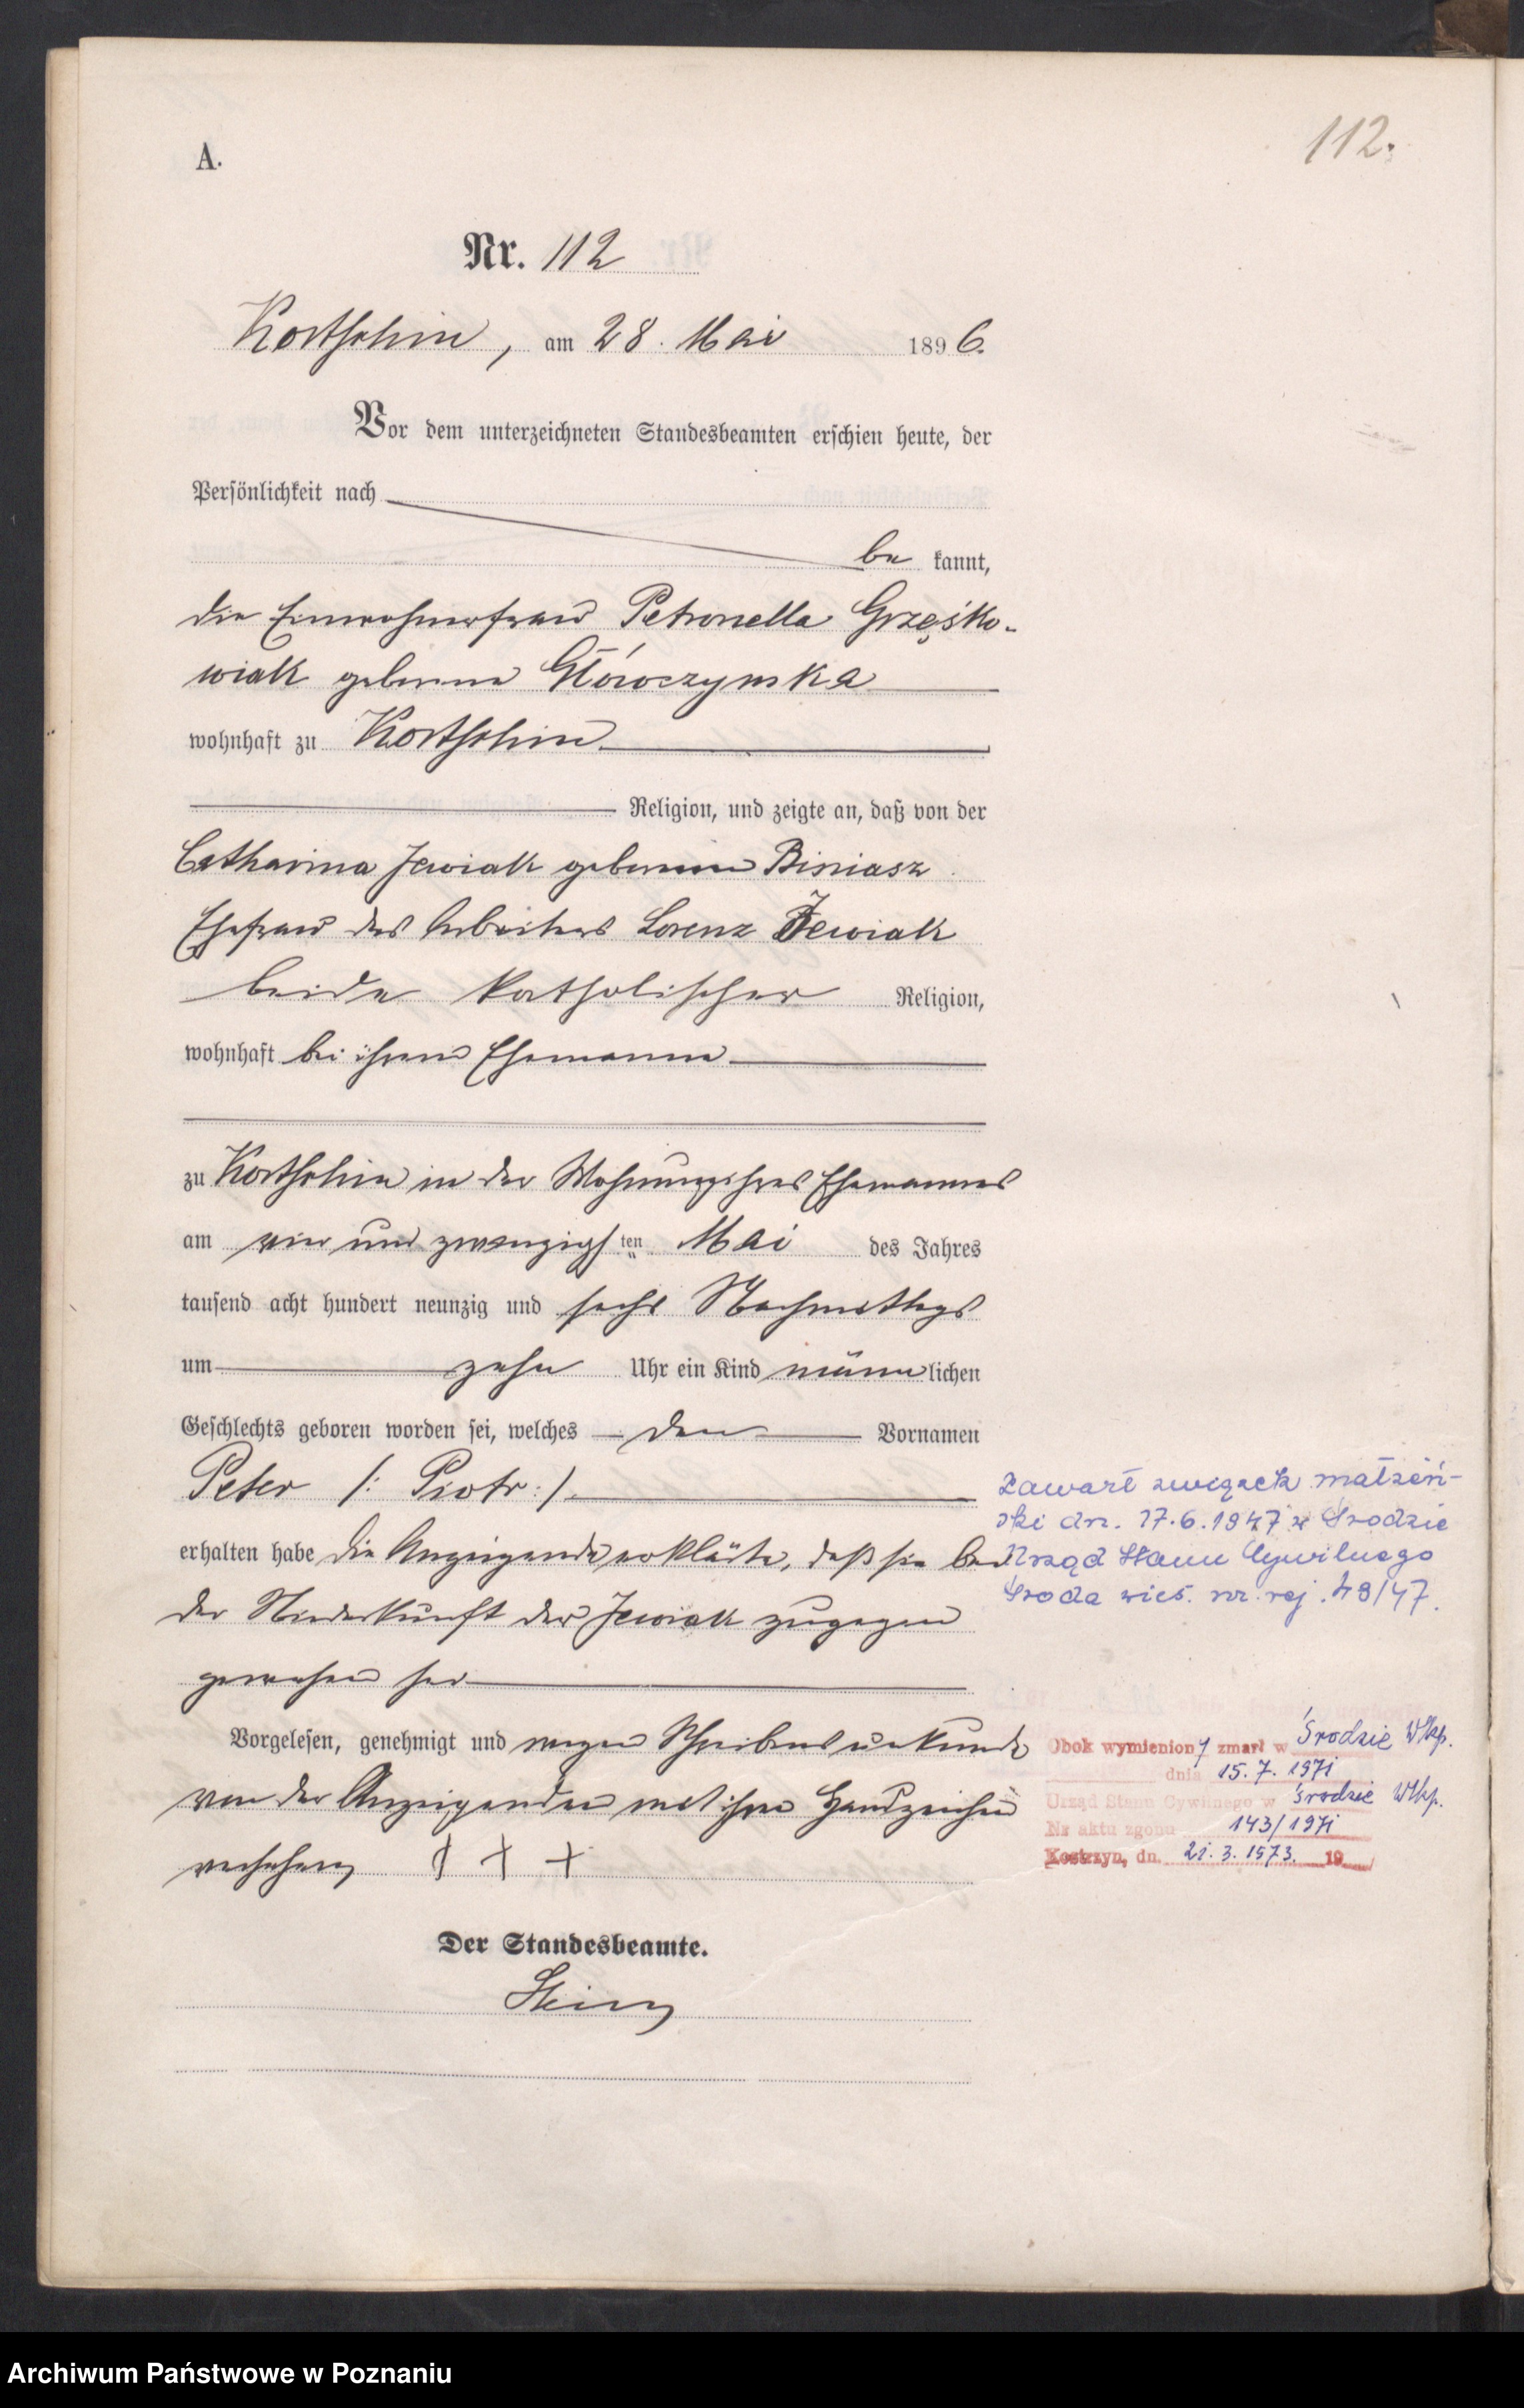 112.
A.
Nr. 112
Kostschin, am 28. Mai 1896.
Vor dem unterzeichneten Standesbeamten erschien heute, der
Persönlichkeit nach
be kannt,
die Einwohnerfrau Petronella Grzęśko-
wiak geborene Główczynska
wohnhaft zu Kostschin
Religion, und zeigte an, daß von der
Catharina Jewiak geborene Bisiasz
Ehefrau des Arbeiters Lorenz Jewiak
beide katholischer Religion,
wohnhaft bei ihrem Ehemanne
zu Kostschin in der Wohnung ihres Ehemannes
am vier und zwanzigsten Mai des Jahres
tausend acht hundert neunzig und sechs Nachmittags
um zehn Uhr ein Kind männlichen
Geschlechts geboren worden sei, welches den Vornamen
Peter /: Piotr :/
erhalten habe die Anzeigende erklärte, daß sie bei
der Niederkunft der Jewiak zugegen
gewesen sei
Zawarł związek małżeń-
ski dn. 17.6.1947 w Środzie
Urząd Stanu Cywilnego
Środa wieś. nr. rej. 49/47.
Vorgelesen, genehmigt und wegen Schreibensunkunde
von der Anzeigenden mit ihrem Handzeichen
versehen + + +
Obok wymieniony zmarł w Środzie Wlkp.
dnia 15.7.1971
Urząd Stanu Cywilnego w Środzie Wlkp.
Nr aktu zgonu 143/1971
Kostrzyn, dn. 21.3.1973. 19
Der Standesbeamte.
Archiwum Państwowe w Poznaniu